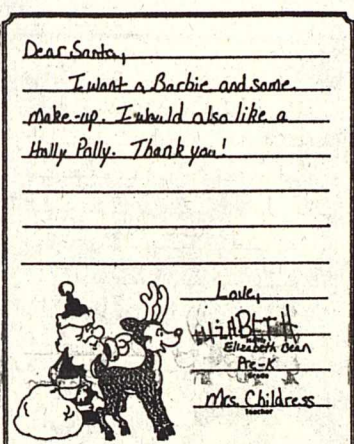 Dear Santa,
I want a Barbie and some
make-up. I would also like a
Holly Polly. Thank you!
Love,
ELIZABETH
Name
Elizabeth Dean
Pre-K
Grade
Mrs. Childress
teacher